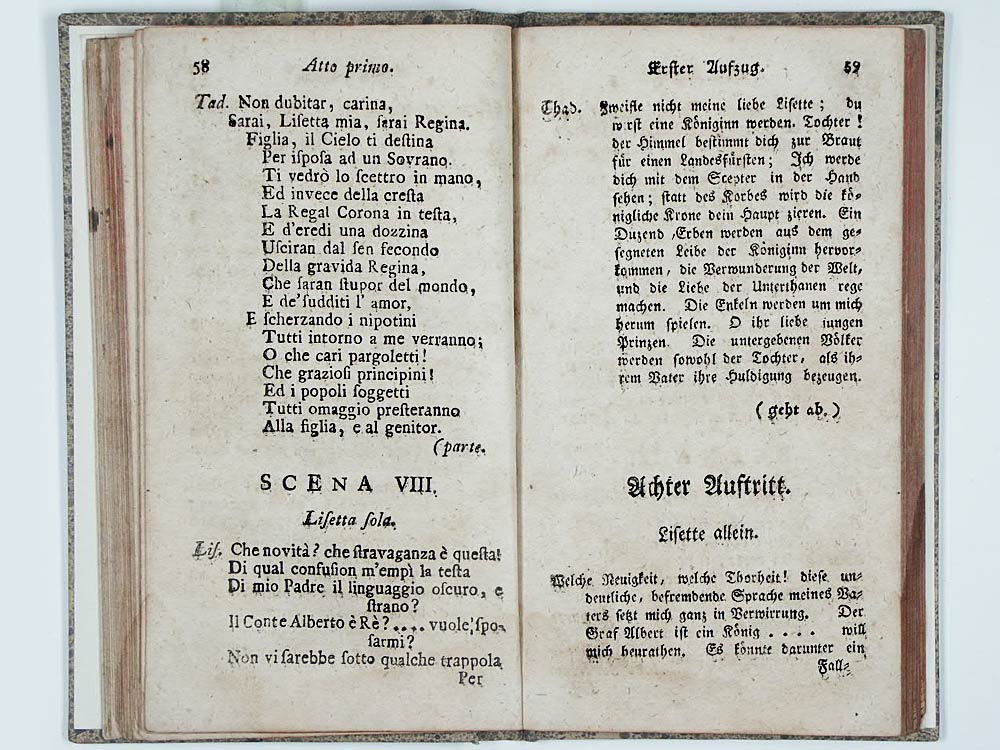 58 Atto primo.
Tad. Non dubitar, carina,
Sarai, Liſetta mia, ſarai Regina.
Figlia, il Cielo ti deſtina
Per iſpoſa ad un Sovrano.
Ti vedrò lo ſcettro in mano,
Ed invece della creſta
La Regal Corona in teſta,
E d'eredi una dozzina
Uſciran dal ſen fecondo
Della gravida Regina,
Che ſaran ſtupor del mondo,
E de' ſudditi l' amor,
E ſcherzando i nipotini
Tutti intorno a me verranno;
O che cari pargoletti!
Che grazioſi principini!
Ed i popoli ſoggetti
Tutti omaggio preſteranno
Alla figlia, e al genitor.
(parte.
SCENA VIII.
Liſetta ſola.
Liſ. Che novità? che ſtravaganza è queſta!
Di qual confuſion m'empì la teſta
Di mio Padre il linguaggio oſcuro, e
ſtrano?
Il Conte Alberto è Rè? .... vuole ſpo-
ſarmi?
Non vi ſarebbe ſotto qualche trappola
Per
Erſter Aufzug. 59
Thad. Zweifle nicht meine liebe Liſette; du
wirſt eine Königinn werden. Tochter!
der Himmel beſtimmt dich zur Braut
für einen Landesfürſten; Ich werde
dich mit dem Scepter in der Hand
ſehen; ſtatt des Korbes wird die kö-
nigliche Krone dein Haupt zieren. Ein
Duzend Erben werden aus dem ge-
ſegneten Leibe der Königinn hervor-
kommen, die Verwunderung der Welt,
und die Liebe der Unterthanen rege
machen. Die Enkeln werden um mich
herum ſpielen. O ihr liebe jungen
Prinzen. Die untergebenen Völker
werden ſowohl der Tochter, als ih-
rem Vater ihre Huldigung bezeugen.
(geht ab.)
Achter Auftritt.
Liſette allein.
Welche Neuigkeit, welche Thorheit! dieſe un-
deutliche, befremdende Sprache meines Va-
ters ſetzt mich ganz in Verwirrung. Der
Graf Albert iſt ein König .... will
mich heurathen. Es könnte darunter ein
Fall-